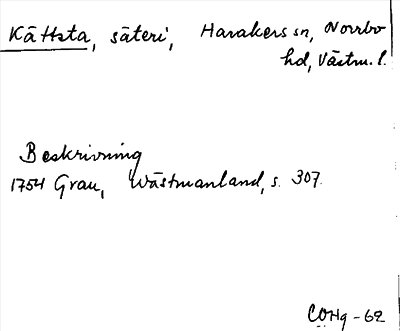 Kättsta, säteri, Harakers sn, Norrbo
hd, Västm. l.
Beskrivning
1754 Grau, Wästmanland, s. 307.
COHg - 62